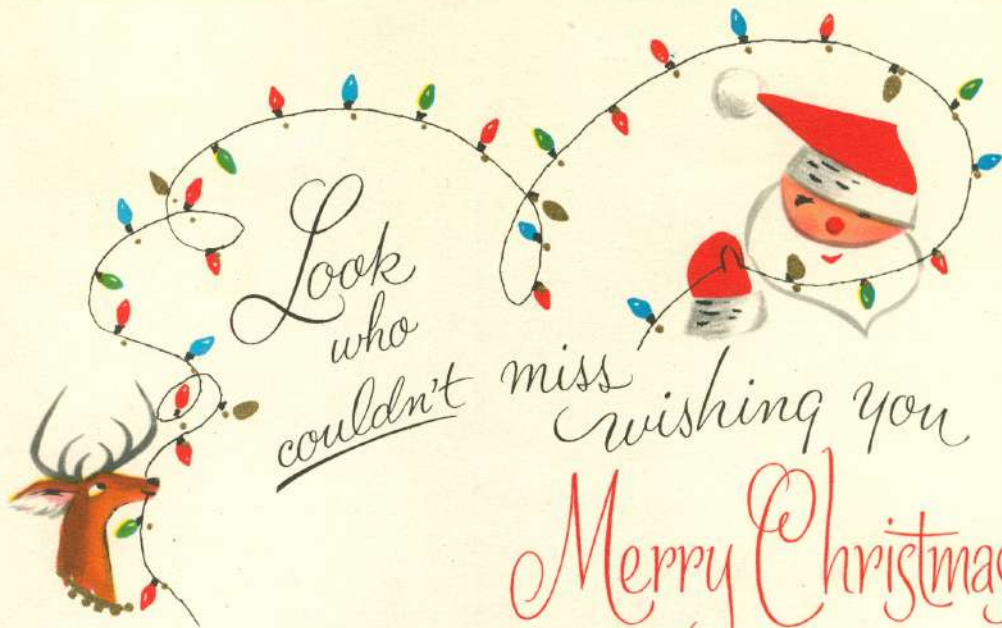 Look
who
couldn't miss
wishing you
Merry Christmas